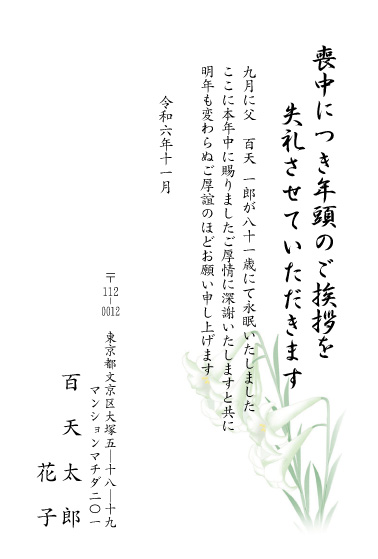 喪中につき年頭のご挨拶を
失礼させていただきます
九月に父　百天 一郎が八十一歳にて永眠いたしました
ここに本年中に賜りましたご厚情に深謝いたしますと共に
明年も変わらぬご厚誼のほどお願い申し上げます
令和六年十一月
〒112-0012
東京都文京区大塚五―十八―十九
マンションマチダ二〇一
百天太郎
花子